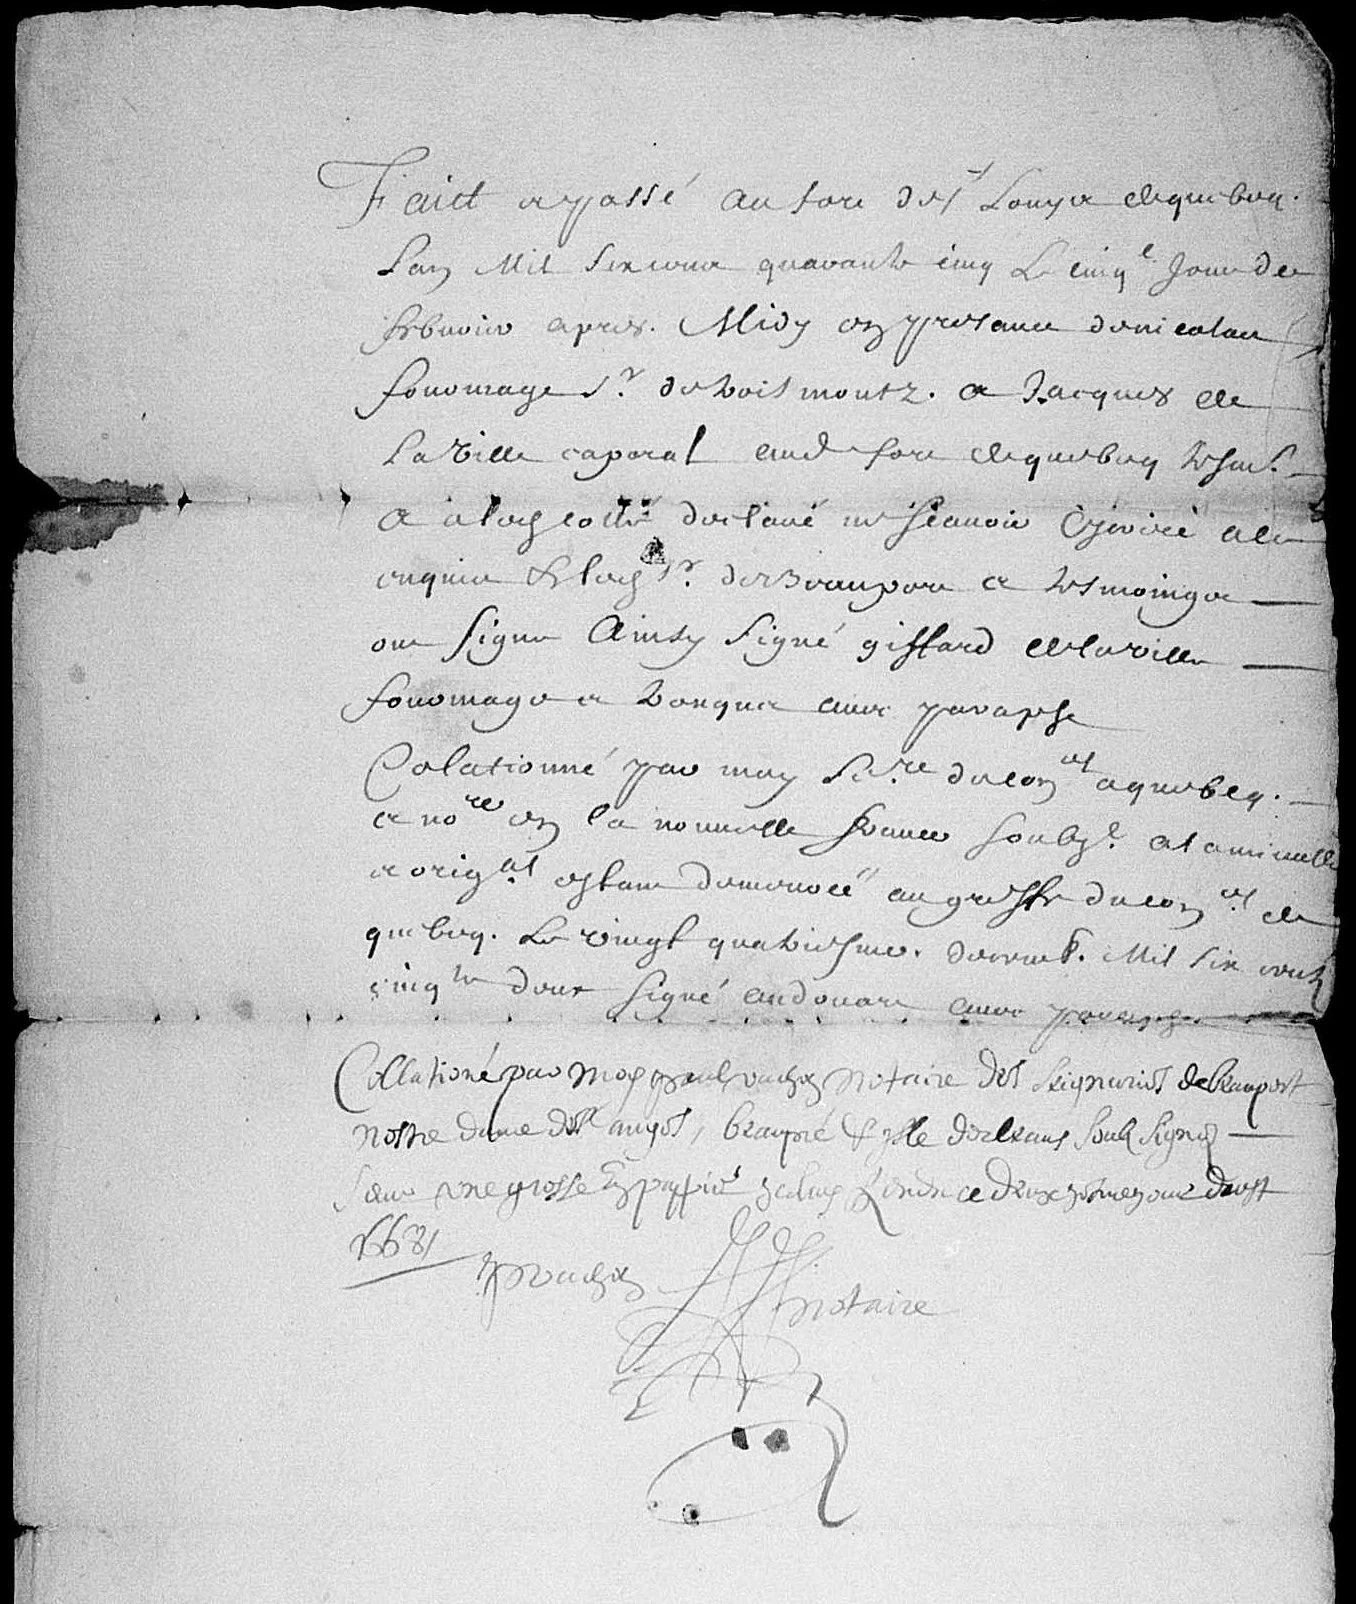 Faict et passé au fort de St Louys de quebecq.
L'an Mil six cent quarante cinq Le cinqe Jour de
febvrier apres. Midy en presance de nicolas
fonomage Sr de bois montz. et Jacques de
La Ville caporal aud fort de quebecq tesm.
et a led declaré ne scavoir escrire a le
enquis et led Sr de Beauport et tesmoings
ont signe Ainsy signé giffard de la ville
fonomage et tronquet avec paraphe
Colationné par moy secre du conel a quebecq.
et nore en la nouvelle france soubz. a la minutte
et origal estant demeuré au greffe du conel de
quebecq. Le vingt quatriesme. Mil six cents
cinqte deux signé audouart avec paraphe
Collationé par Moy paul vachon Notaire des seigneuries de beauport
Nostre dame des anges, beaupré & isle dorleans soubs signé
sur une grosse en pappier ce deux aoust
1668
P Vachon notaire